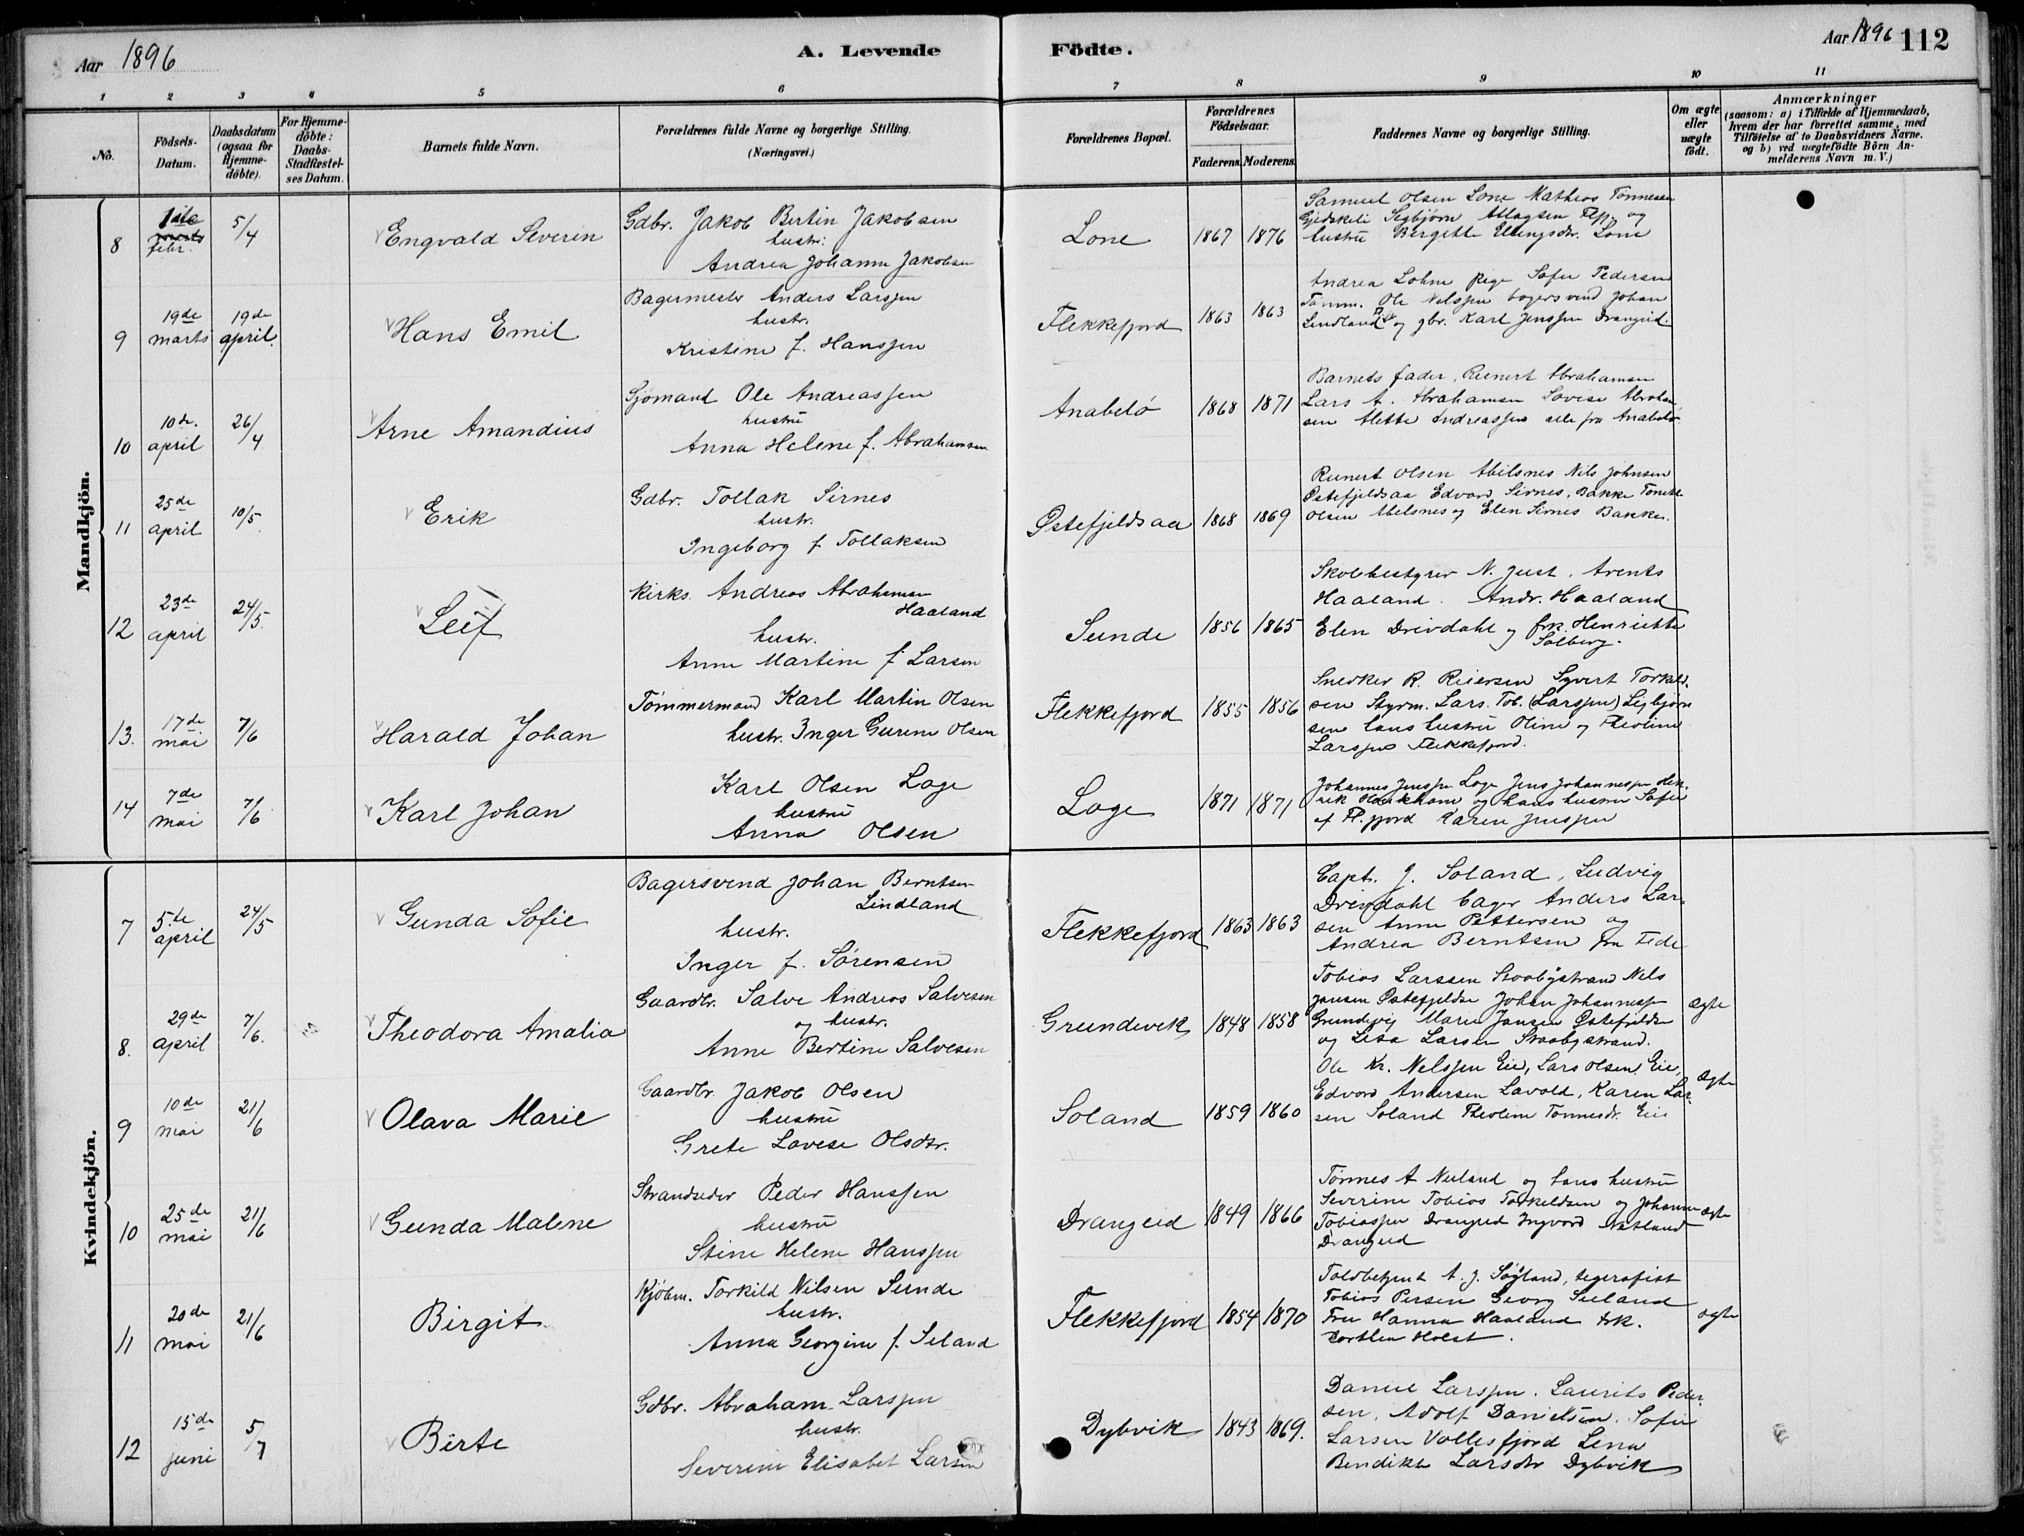 Aar 1896
A. Levende Födte.
Aar 1896 112
1 2 3 4 5 6 7 8 9 10 11
No.
Födsels-Datum.
Daabsdatum (ogsaa for Hjemme-döbte).
For Hjemme-döbte: Daabs-Stadfæstel-ses Datum.
Barnets fulde Navn.
Forældrenes fulde Navne og borgerlige Stilling.
(Næringsvei.)
Forældrenes Bopæl.
Forældrenes Födselsaar.
Faderens. Moderens.
Faddernes Navne og borgerlige Stilling.
Om ægte eller uægte födt.
Anmærkninger
(saasom: a) i Tilfælde af Hjemmedaab,
hvem der har forrettet samme, med
Tilföielse af to Daabsvidners Navne.
og b) ved uægtefödte Börn An-
melderens Navn m. V.)
Mandkjön.
8 febr. 5/4 Engvald Severin
Gdbr. Jakob Bertin Jakobsen
hustr:
Andrea Johanne Jakobsen
Lone 1867 1876
Samuel Olsen Lone Mathias Tønnesen
Sigbjørn Atlagsen Flp. og
hustru Bergitte Ellingsdtr. Lone
9 19de marts 19de april. Hans Emil
Bagermester Anders Larssen
hustr.
Kristine f. Hanssen
Flekkefjord 1863 1863
Andrea Lohne pige Sofie Pedersen
Tømm. Ole Nilssen bagersvend Johan
Lindland og gbr. Karl Jenssen Drangeid.
10 10de. april 26/4 Arne Amandius
Sjømand Ole Andreassen
hustru
Anna Helene f. Abrahamsen
Anabelø 1868 1871
Barnets fader, Reinert Abrahamsen
Lars A. Abrahamsen Lovise Abraham-
sen Alette Andreassen alle fra Anabelø
11 25de april 10/5. Erik
Gdbr. Tollak Sirnes
hustr.
Ingeborg f Tollaksen
Østefjeldsaa 1868 1869
Reinert Olsen Abelsnes Nils Johnsen
Østefjeldsaa Edvard Sirnes, Bakke
Olsen Abelsnes og Elen Sirnes Bakke.
12 23de april 24/5. Leif
Kirks. Andreas Abrahamsen
Haaland
hustr.
Anne Martine f Larsen
Sunde 1856 1865
Skolebestyrer N. Just. Arents
Haaland. Andr. Haaland
Elen Drivdahl og frk. Henriette
Solberg.
13. 17de mai 7/6 Harald Johan
Tømmermand Karl Martin Olsen
hustr. Inger Gurine Olsen
Flekkefjord 1855 1856
Snedker R. Reiersen Syvert Torkild-
sen Styrm. Lars. Tob. (Larssen) Sigbjørn
sen hans hustru Oline og Theoline
Larssen Flekkefjord.
14 7de mai 7/6 Karl Johan
Karl Olsen Loge
hustru
Anna Olsen
Loge 1871 1871
Johannes Jenssen Loge Jens Johannessen
og hans hustru Sofie
af Fl.fjord Karen Jenssen
Kvindekjön.
7 5.te april 24/5 Gunda Sofie
Bagersvend Johan Berntsen
Lindland
hustr.
Inger f. Sørensen
Flekkefjord 1863 1863
Capt. J. Soland, Ludvig
Drivdahl bager Anders Lar-
sen Anne Pettersen og
Andrea Berntsen fra Fede
8. 29de april 7/6. Theodora Amalia
Gaardbr. Salve Andreas Salvesen
og hustr.
Anne Bertine Salvesen
Grundevik 1848 1858
Tobias Larssen Stoobystrand Nils
Jansen Johan Johannessen
Grundevig Maren Jansen
og Lisa Larsen Stoobystrand.
Ægte
9 10de mai 21/6 Olava Marie
Gaardbr. Jakob Olsen
hustru
Grete Lovise Olsdtr.
Soland 1859 1860
Ole Kr. Nilssen Eie, Lars Olsen, Eie,
Edvard Andersen Lavold, Karen Lar-
sen Soland Theoline Tønnesdtr. Eie
Ægte
10 25de mai 21/6 Gunda Malene
Strandsider Peder Hanssen
hustru
Stine Helene Hanssen
Drangeid 1849 1866
Tønnes A Nuland og hans hustru
Severine Tobias Torkeldsen og Johanne
Tobiassen Drangeid Ingvard Natland
Drangeid
ægte
11 20de mai 21/6 Birgit
Kjøbm. Torkild Nilsen Sunde
hustr.
Anna Georgine f. Seland
Flekkefjord 1854 1870
Toldbetjent A. J. Søyland, tegerafist
Tobias Persen Georg Seeland
Fru Hanna Haaland frk.
Holst.
ægte
12 15de juni 5/7 Birte
Gdbr. Abraham Larssen
hustr.
Severine Elisabet Larsen
Dybvik 1843 1869.
Daniel Larssen. Laurits Peder-
sen, Adolf Danielsen. Sofie
Larsen Vollesfjord Lena
Bendikte Larsdtr Dybvik